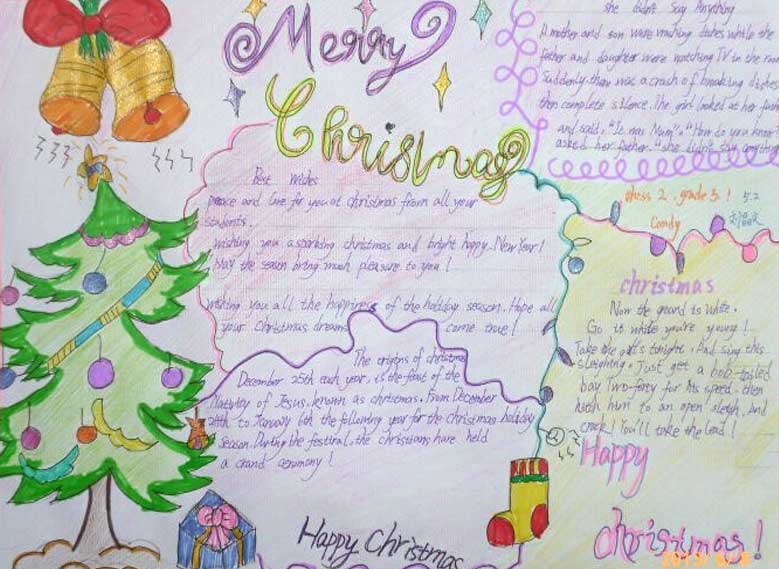 Merry
Christmas
she didn't Say Anything
A mother and son were washing dishes while the
father and daughter were watching TV in the room
Suddenly there was a crash of breaking dishes
then complete silence. The girl looked at her father
and said, "It was Mum". "How do you know"
asked her father. "she didn't say anything
class 2, grade 5! 5.2
Candy
Best Wishes
peace and love for you at christmas from all your
students.
Wishing you a sparking christmas and bright happy New Year!
May the season bring much pleasure to you!
wishing you all the happiness of the holiday season. Hope all
your Christmas dreams come true!
The origins of christmas
December 25th each year, is the feast of the
Nativity of Jesus, known as christmas. From December
24th to January 6th the following year for the christmas holiday
season. During the festival, the christians have held
a grand ceremony!
christmas
Now the ground is white.
Go it while you're young!
Take the girls tonight. And sing this
sleighing. Just get a bob-tailed
bay Two-forty for his speed. then
hitch him to an open sleigh, And
crack! You'll take the lead!
Happy
christmas!
Happy Christmas